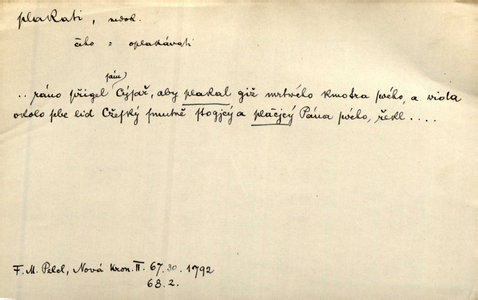 plakati, nedok.
čeho = oplakávati
páně)
.. ráno přigel Cýsař, aby plakal giž mrtwého kmotra swého, a wida
okolo sebe lid Cžeský smutně stogjcý a pláčjcý Pána swého, řekl ....
F. M. Pelcl, Nová kron. II. 67.30. 1792
68.2.